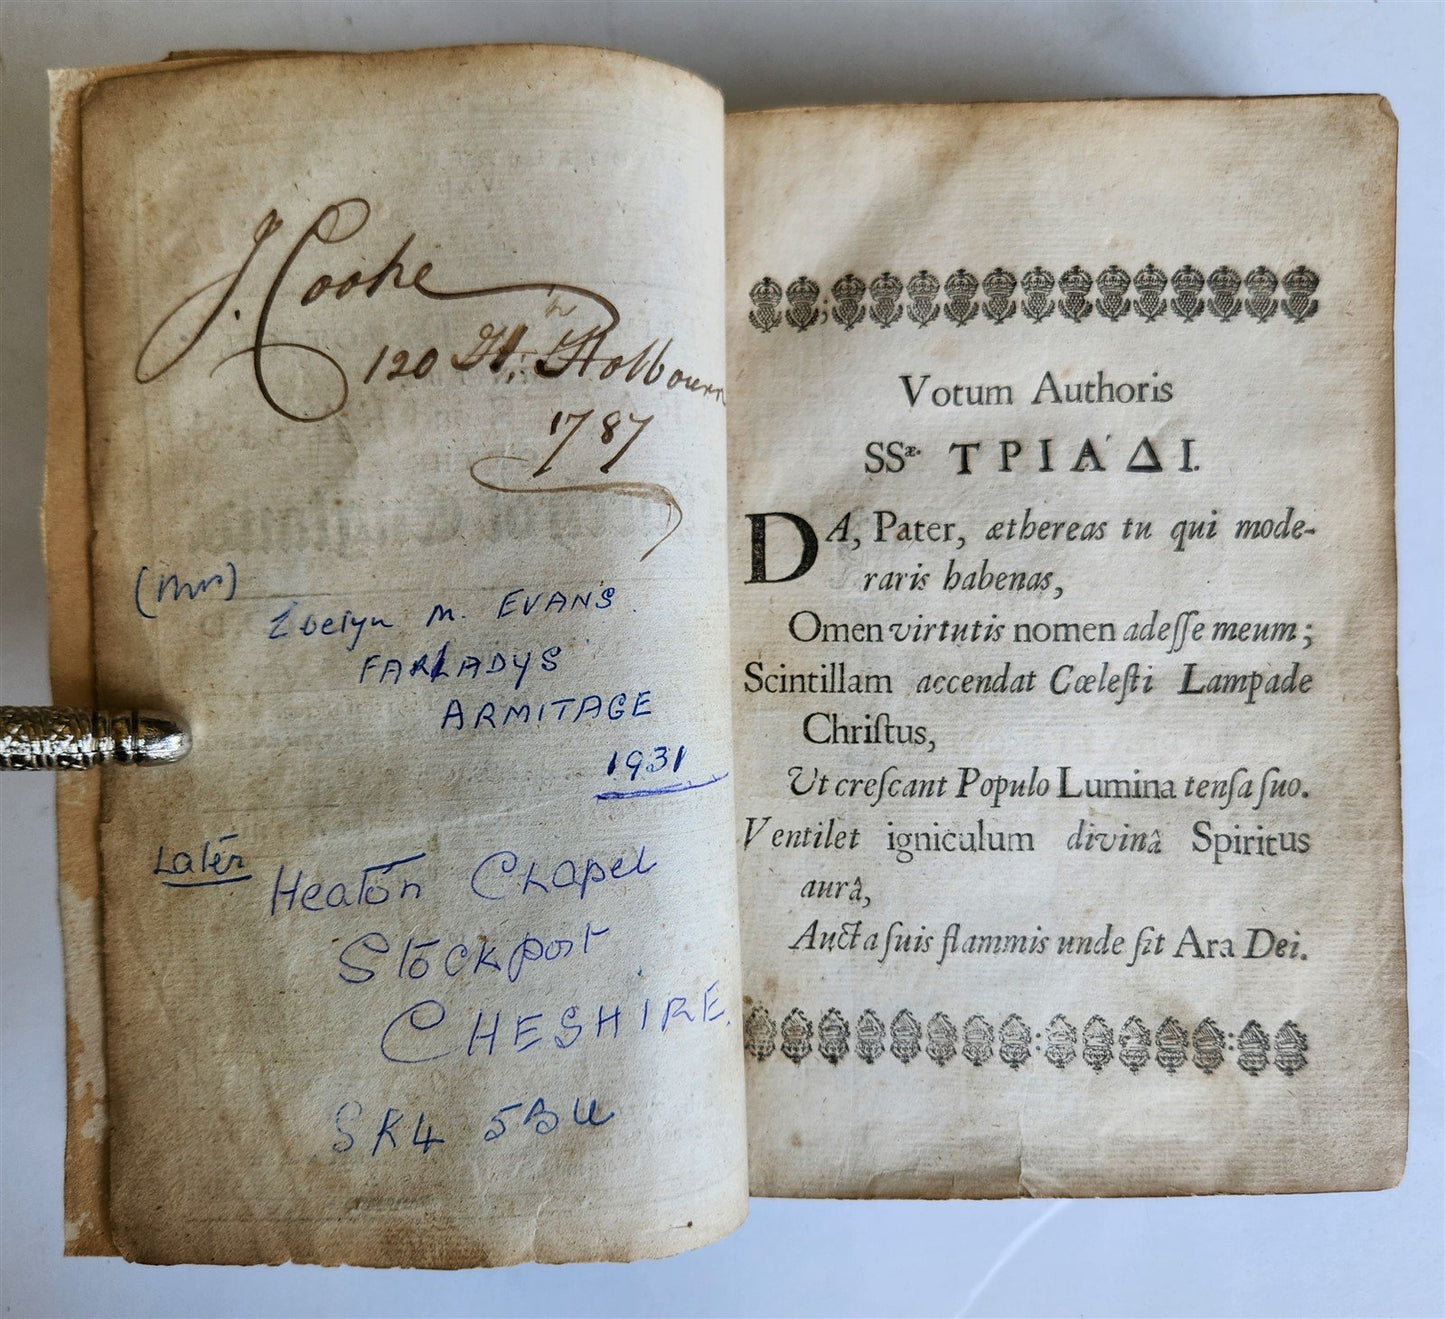 J. Cooke
120 Hh. Holbourn
1787
(Mrs)
Evelyn M. EVANS.
FARLADYS
ARMITAGE
1931
Later
Heaton Chapel
Stockport
CHESHIRE.
SK4 5BU
Votum Authoris
SSæ. ΤΡΙΆΔΙ.
DA, Pater, æthereas tu qui mode-
raris habenas,
Omen virtutis nomen adeſſe meum;
Scintillam accendat Cœleſti Lampade
Chriſtus,
Ut creſcant Populo Lumina tenſa ſuo.
Ventilet igniculum divinâ Spiritus
aurâ,
Aucta ſuis flammis unde ſit Ara Dei.